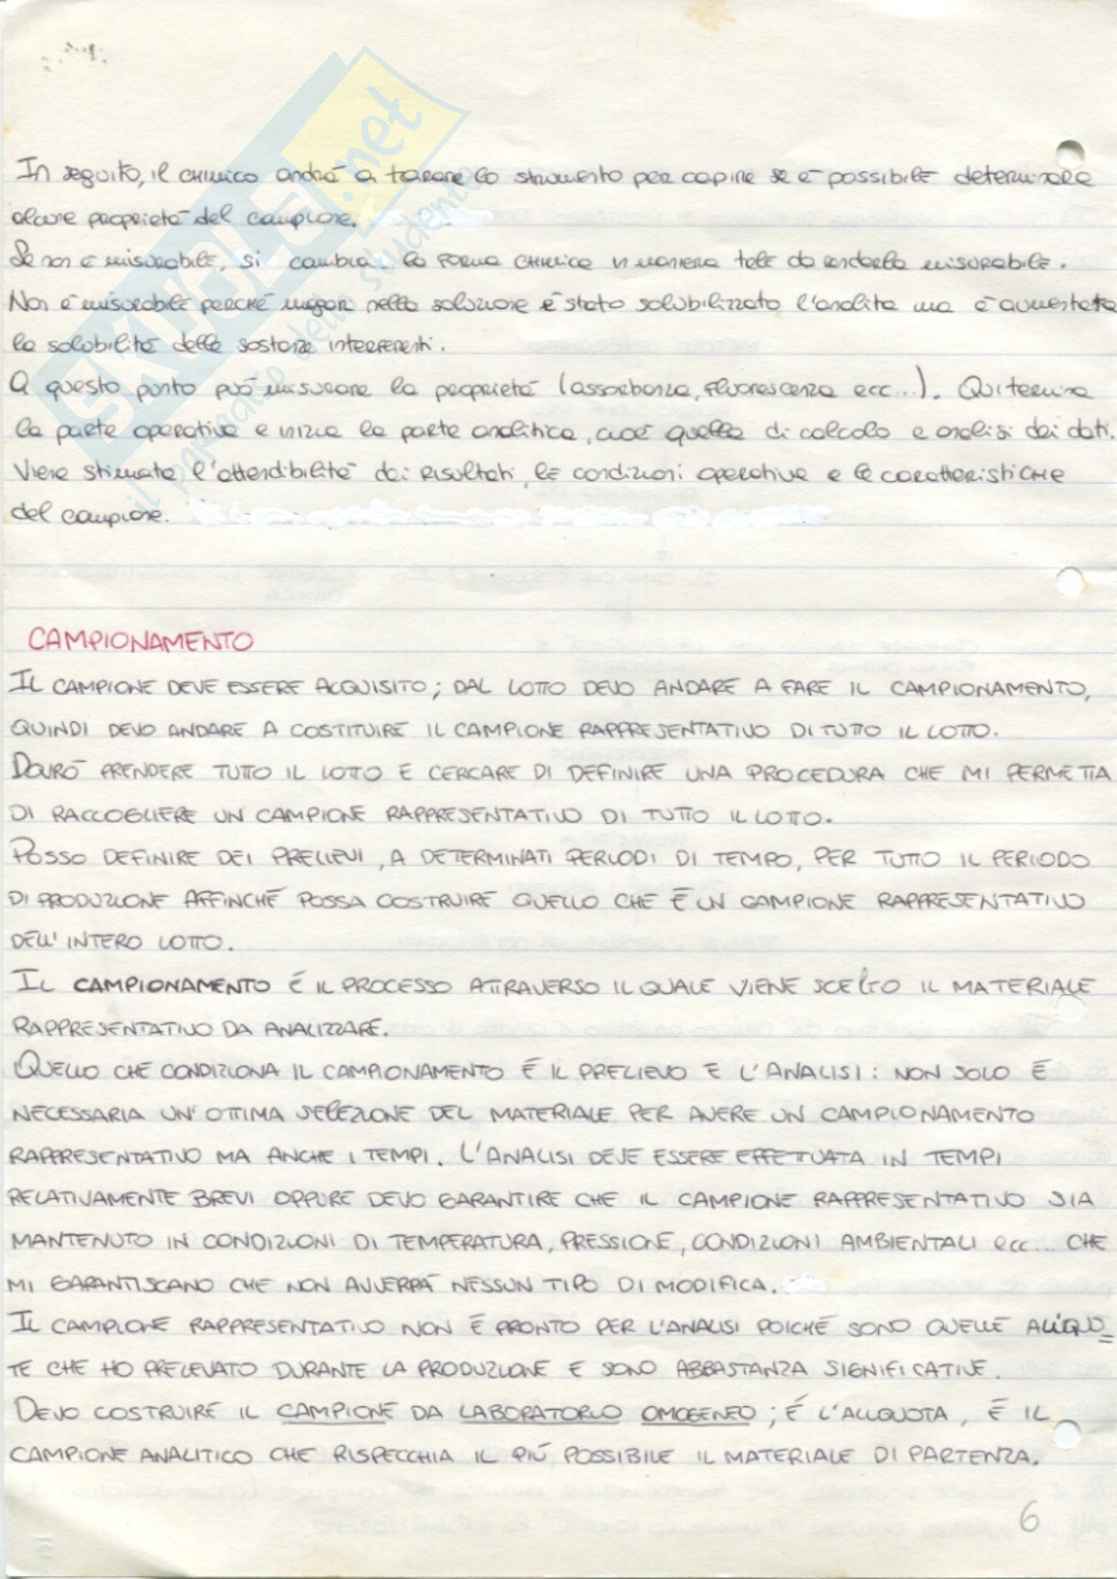 In seguito, il chimico andrà a tarare lo strumento per capire se è possibile determinare
alcune proprietà del campione.
Se non è misurabile, si cambia la forma chimica in maniera tale da renderla misurabile.
Non è misurabile perché magari nella soluzione è stato solubilizzato l'analita ma è aumentata
la solubilità delle sostanze interferenti.
A questo punto può misurare la proprietà (assorbanza, fluorescenza ecc...). Qui termina
la parte operativa e inizia la parte analitica, cioè quella di calcolo e analisi dei dati.
Viene stimata l'attendibilità dei risultati, le condizioni operative e le caratteristiche
del campione.
CAMPIONAMENTO
IL CAMPIONE DEVE ESSERE ACQUISITO; DAL LOTTO DEVO ANDARE A FARE IL CAMPIONAMENTO,
QUINDI DEVO ANDARE A COSTITUIRE IL CAMPIONE RAPPRESENTATIVO DI TUTTO IL LOTTO.
DOVRÒ PRENDERE TUTTO IL LOTTO E CERCARE DI DEFINIRE UNA PROCEDURA CHE MI PERMETTA
DI RACCOGLIERE UN CAMPIONE RAPPRESENTATIVO DI TUTTO IL LOTTO.
POSSO DEFINIRE DEI PRELIEVI, A DETERMINATI PERIODI DI TEMPO, PER TUTTO IL PERIODO
DI PRODUZIONE AFFINCHÉ POSSA COSTRUIRE QUELLO CHE È UN CAMPIONE RAPPRESENTATIVO
DELL'INTERO LOTTO.
IL CAMPIONAMENTO È IL PROCESSO ATTRAVERSO IL QUALE VIENE SCELTO IL MATERIALE
RAPPRESENTATIVO DA ANALIZZARE.
QUELLO CHE CONDIZIONA IL CAMPIONAMENTO È IL PRELIEVO E L'ANALISI: NON SOLO È
NECESSARIA UN'OTTIMA SELEZIONE DEL MATERIALE PER AVERE UN CAMPIONAMENTO
RAPPRESENTATIVO MA ANCHE I TEMPI. L'ANALISI DEVE ESSERE EFFETTUATA IN TEMPI
RELATIVAMENTE BREVI OPPURE DEVO GARANTIRE CHE IL CAMPIONE RAPPRESENTATIVO SIA
MANTENUTO IN CONDIZIONI DI TEMPERATURA, PRESSIONE, CONDIZIONI AMBIENTALI ecc... CHE
MI GARANTISCANO CHE NON AVVERRÀ NESSUN TIPO DI MODIFICA.
IL CAMPIONE RAPPRESENTATIVO NON È PRONTO PER L'ANALISI POICHÉ SONO QUELLE ALIQUO=
TE CHE HO PRELEVATO DURANTE LA PRODUZIONE E SONO ABBASTANZA SIGNIFICATIVE.
DEVO COSTRUIRE IL CAMPIONE DA LABORATORIO OMOGENEO; È L'ALIQUOTA, È IL
CAMPIONE ANALITICO CHE RISPECCHIA IL PIÙ POSSIBILE IL MATERIALE DI PARTENZA.
6
SKUOLA.net
il paradiso dello studente